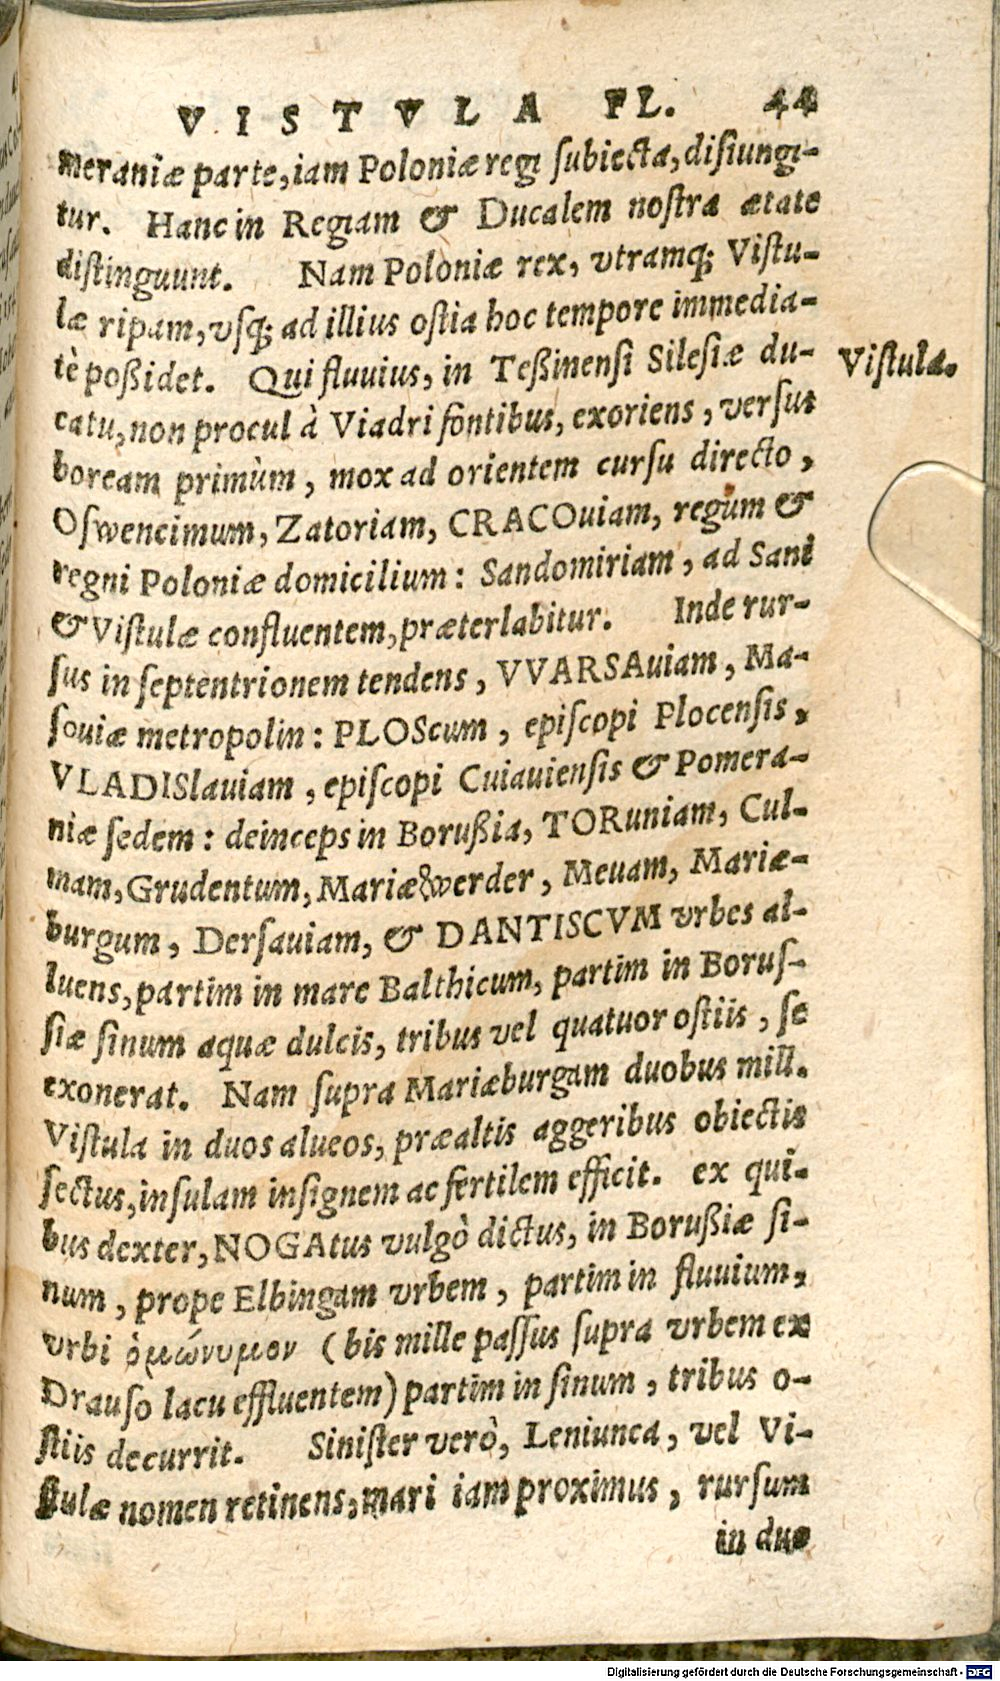 VISTVLA FL. 44
meraniæ parte, iam Poloniæ regi subiecta, disiungi-
tur. Hanc in Regiam & Ducalem nostra ætate
distinguunt. Nam Poloniæ rex, vtramq; Vistu-
læ ripam, vsq; ad illius ostia hoc tempore immedia-
tè poßidet. Qui fluuius, in Teßinensi Silesiæ du-
catu, non procul à Viadri fontibus, exoriens, versus
boream primùm, mox ad orientem cursu directo,
Oswencimum, Zatoriam, CRACOuiam, regum &
regni Poloniæ domicilium: Sandomiriam, ad Sani
& Vistulæ confluentem, præterlabitur. Inde rur-
sus in septentrionem tendens, VVARSAuiam, Ma-
souiæ metropolin: PLOScum, episcopi Plocensis,
VLADISlauiam, episcopi Cuiauiensis & Pomera-
niæ sedem: deinceps in Borußia, TORuniam, Cul-
mam, Grudentum, Mariæwerder, Meuam, Mariæ-
burgum, Dersauiam, & DANTISCVM vrbes al-
luens, partim in mare Balthicum, partim in Borus-
siæ sinum aquæ dulcis, tribus vel quatuor ostiis, se
exonerat. Nam supra Mariæburgam duobus mill.
Vistula in duos alueos, præaltis aggeribus obiectis
sectus, insulam insignem ac fertilem efficit. ex qui-
bus dexter, NOGAtus vulgò dictus, in Borußiæ si-
num, prope Elbingam vrbem, partim in fluuium,
vrbi ὁμώνυμον (bis mille passus supra vrbem ex
Drauso lacu effluentem) partim in sinum, tribus o-
stiis decurrit. Sinister verò, Leniunca, vel Vi-
stulæ nomen retinens, mari iam proximus, rursum
in duo
Vistula.
Digitalisierung gefördert durch die Deutsche Forschungsgemeinschaft - DFG